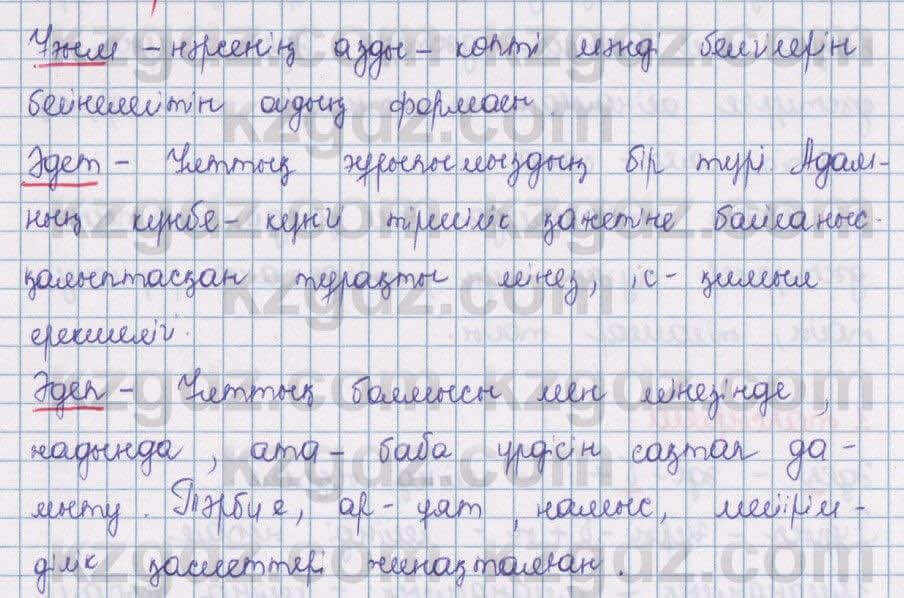 Ұғым – нәрсенің азды – көпті мәнді белгілерін
бейнелейтін ойдың формасы.
Әдет – Ұлттық ғұрпымыздың бір түрі. Адам-
ның күнбе – күнгі тіршілік қажетіне байланыс-
қалыптасқан тұрақты мінез, іс – қимыл
ерекшелігі.
Әдеп – Ұлттық болмысы мен мінезінде,
қадында, ата – баба үрдісін сақтап да-
мыту. Тәрбие, ар – ұят, намыс, мейірім-
ділік қасиеттері жинақталған.
kzgdz.com